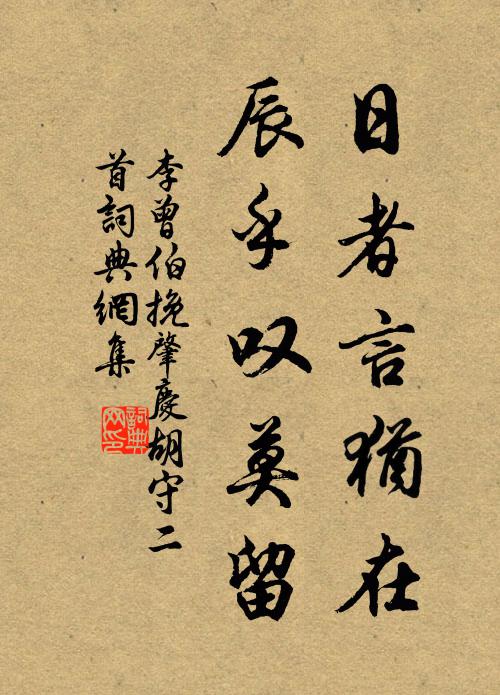 日者言猶在
辰乎叹莫留
李曾伯挽肇慶胡守二
首詞典網集